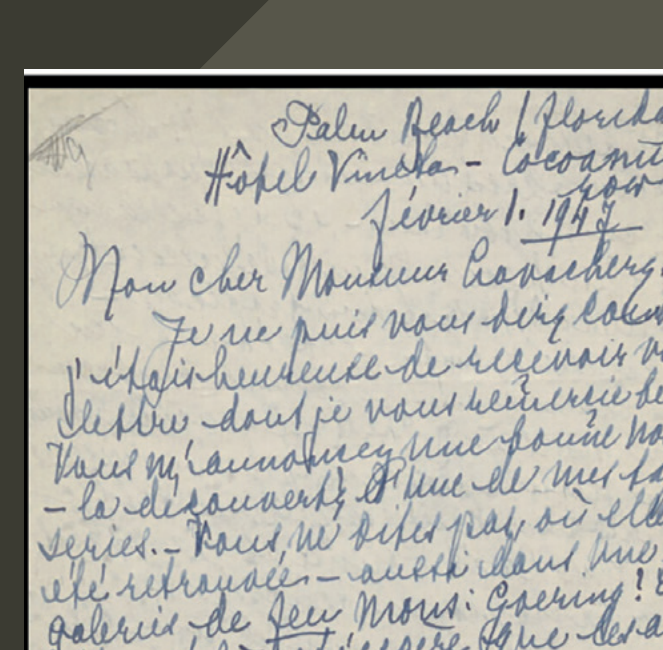 Palm Beach / Florida
Hôtel Vineta - Cocoanut
row
février 1. 1947
Mon cher Monsieur
Je ne puis vous dire
j'étais heureuse de recevoir
lettre dont je vous remercie
Vous m'annoncez une bonne
- la découverte d'une de mes
series. - Vous ne dites pas, où elle
été retrouvée - aussi dans une
galeries de feu Mons: Goering!
que